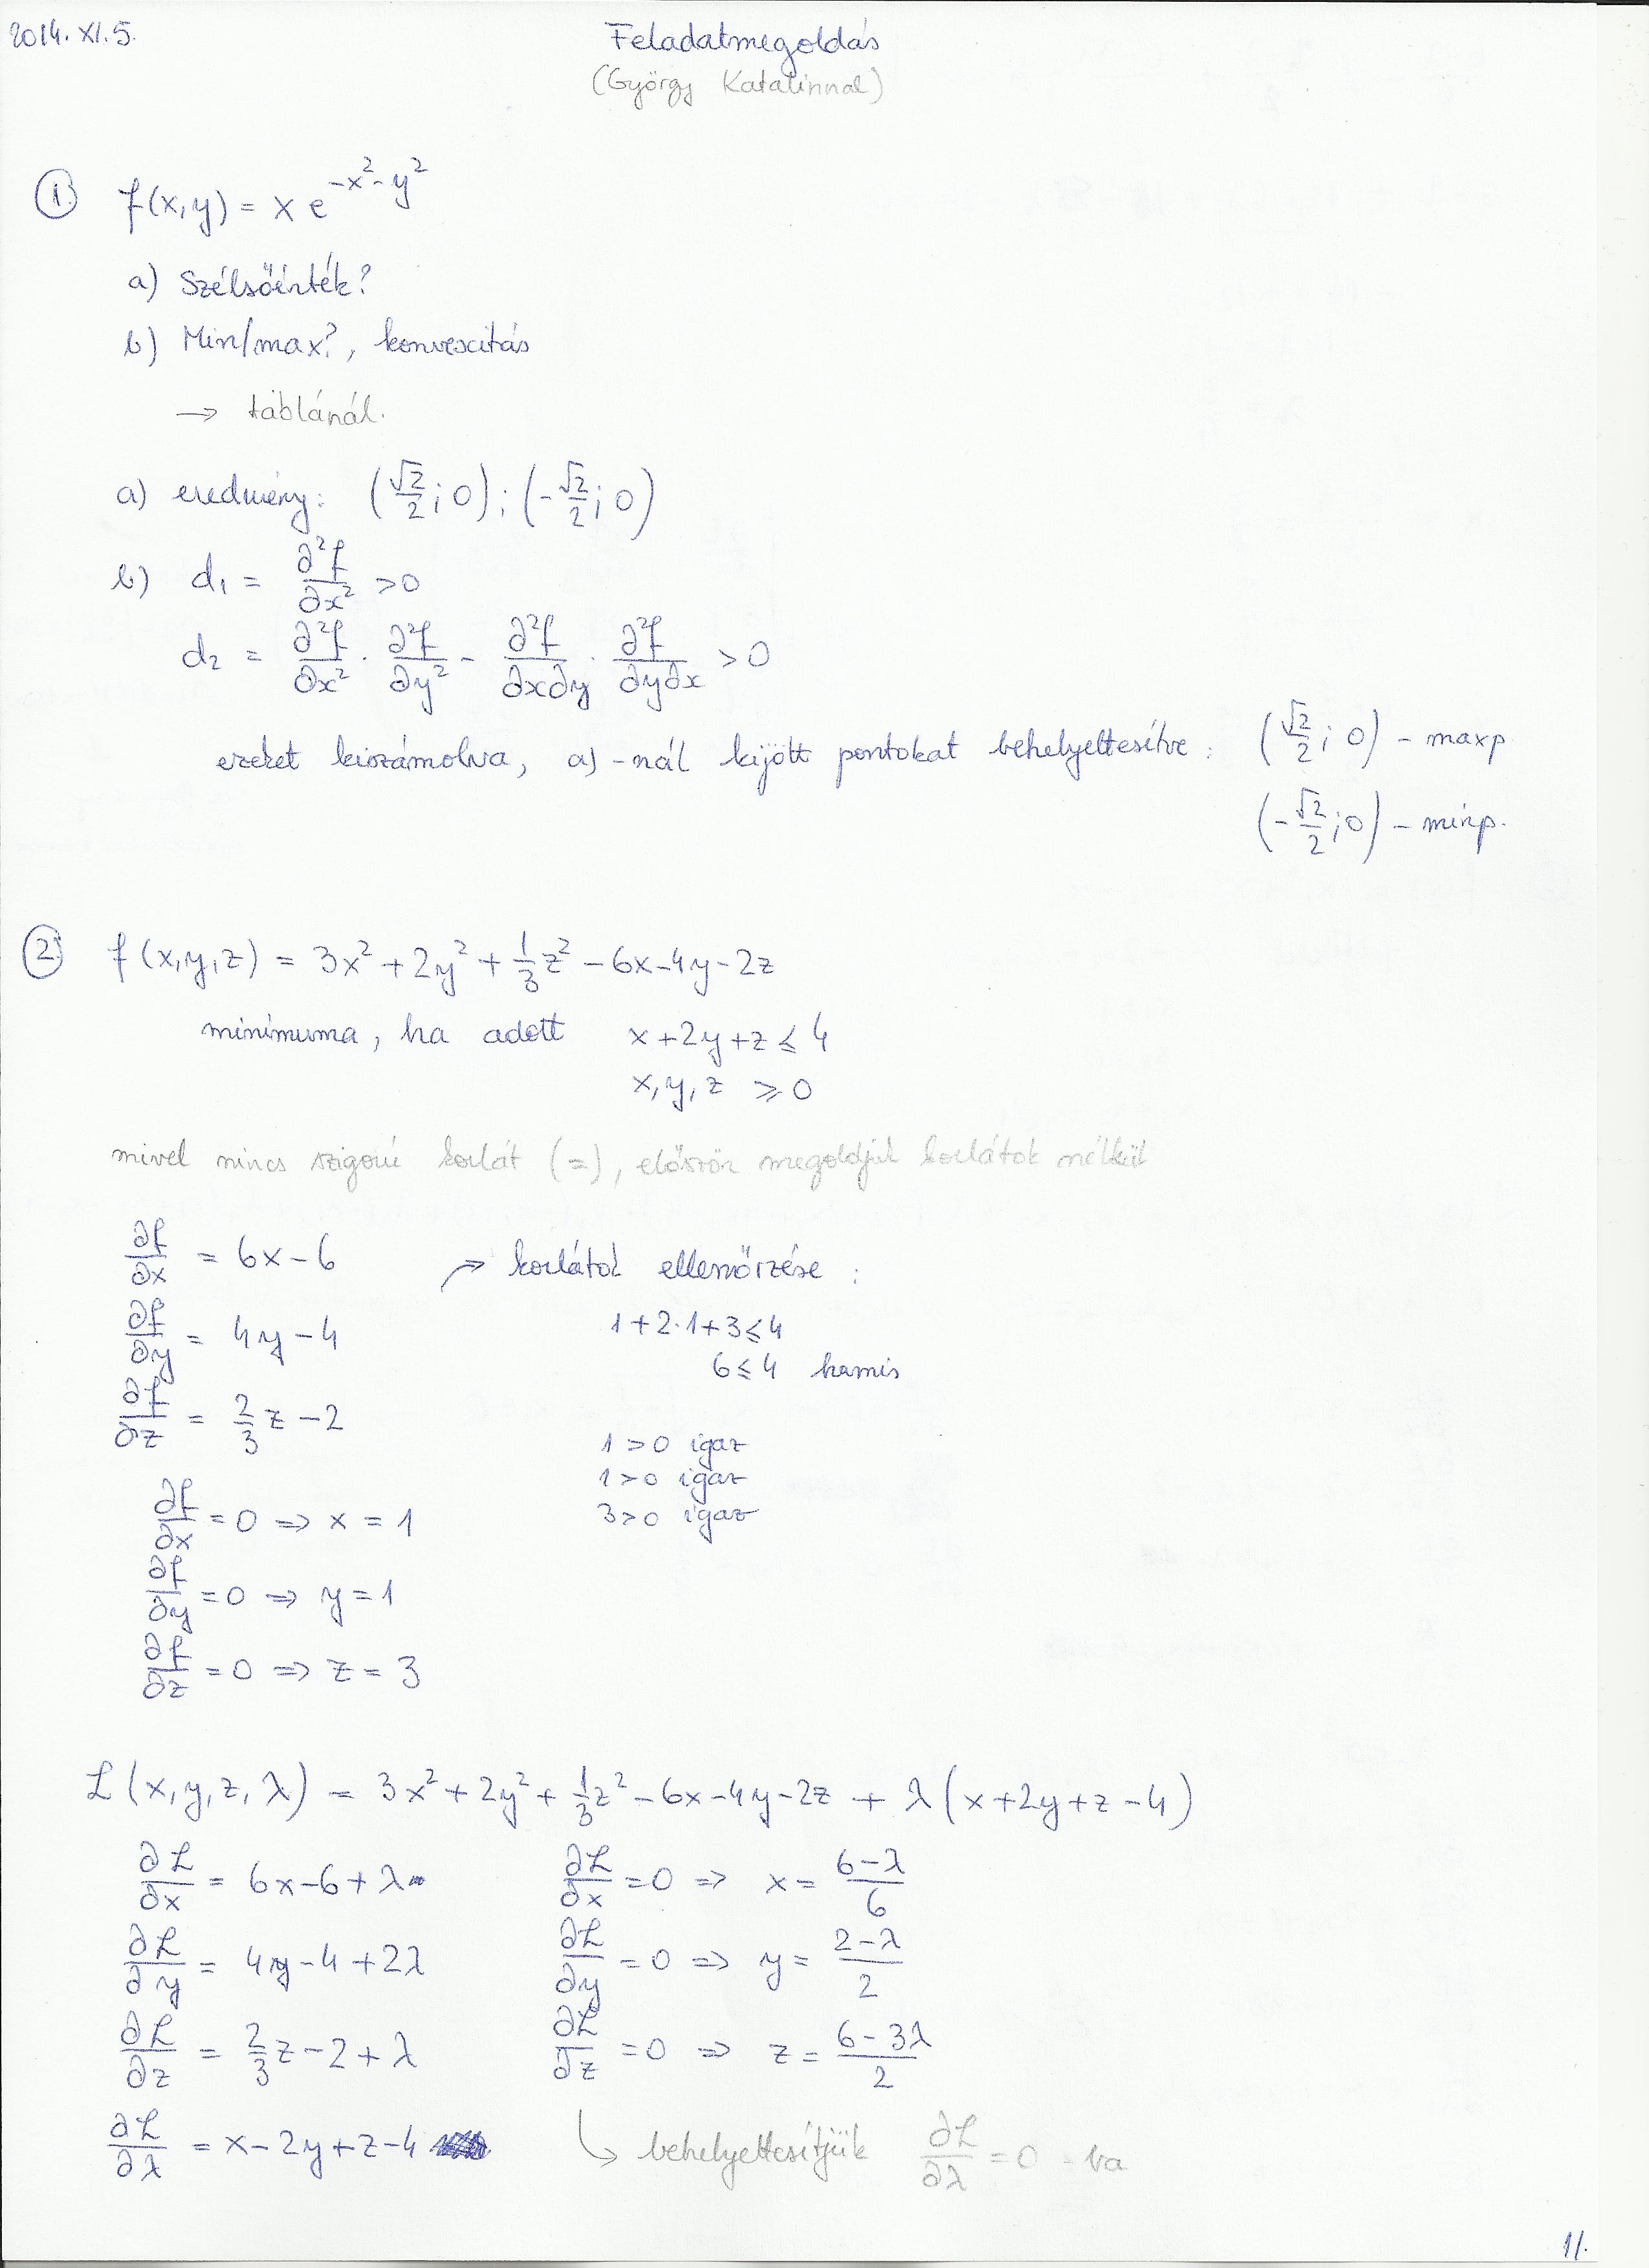 2014. XI. 5.
Feladatmegoldás
(György Katalinnal)
① f(x,y) = x e^{-x²-y²}
a) Szélsőérték?
b) Min/max?, konvexitás
→ táblánál.
a) eredmény: (√2/2; 0); (-√2/2; 0)
b) d₁ = ∂²f/∂x² > 0
d₂ = ∂²f/∂x² · ∂²f/∂y² - ∂²f/∂x∂y · ∂²f/∂y∂x > 0
ezeket kiszámolva, a)-nál kijött pontokat behelyettesítve: (√2/2; 0) - maxp
(-√2/2; 0) - minp.
② f(x,y,z) = 3x² + 2y² + 1/3 z² - 6x - 4y - 2z
minimuma, ha adott x + 2y + z ≤ 4
x, y, z ≥ 0
mivel nincs szigorú korlát (=), először megoldjuk korlátok nélkül
∂f/∂x = 6x - 6
∂f/∂y = 4y - 4
∂f/∂z = 2/3 z - 2
∂f/∂x = 0 ⇒ x = 1
∂f/∂y = 0 ⇒ y = 1
∂f/∂z = 0 ⇒ z = 3
→ korlátok ellenőrzése:
1 + 2·1 + 3 ≤ 4
6 ≤ 4 hamis
1 > 0 igaz
1 > 0 igaz
3 > 0 igaz
ℒ(x,y,z,λ) = 3x² + 2y² + 1/3 z² - 6x - 4y - 2z + λ(x + 2y + z - 4)
∂ℒ/∂x = 6x - 6 + λ ∂ℒ/∂x = 0 ⇒ x = (6-λ)/6
∂ℒ/∂y = 4y - 4 + 2λ ∂ℒ/∂y = 0 ⇒ y = (2-λ)/2
∂ℒ/∂z = 2/3 z - 2 + λ ∂ℒ/∂z = 0 ⇒ z = (6-3λ)/2
∂ℒ/∂λ = x - 2y + z - 4 ↳ behelyettesítjük ∂ℒ/∂λ = 0 - ba
1/.